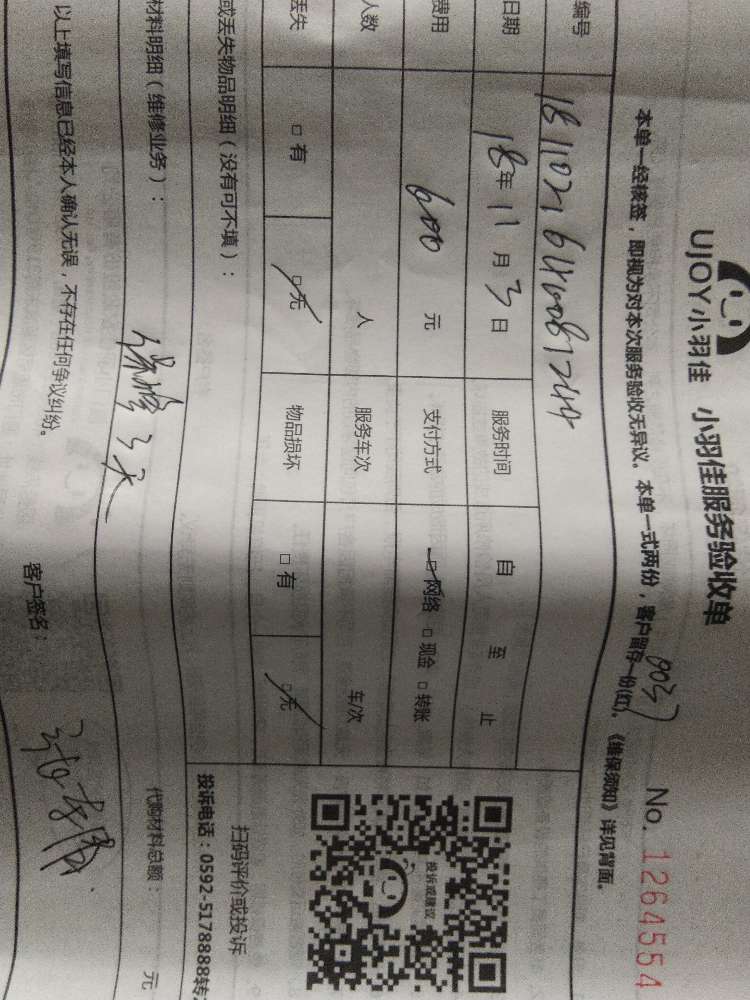 UJOY小羽佳 小羽佳服务验收单
No. 1264554
本单一经核签，即视为对本次服务验收无异议。本单一式两份，客户留存一份(红)。《维保须知》详见背面。
0037
编号
日期 18年11月3日 服务时间 自 至 止
费用 600 元 支付方式 □网络 □现金 □转账
人数 人 服务车次 车次
丢失 □有 □无 物品损坏 □有 □无
或丢失物品明细（没有可不填）：
材料明细（维修业务）：
代购材料总额： 元
以上填写信息已经本人确认无误，不存在任何争议纠纷。
客户签名：
投诉或建议
扫码评价或投诉
投诉电话：0592-5178888转